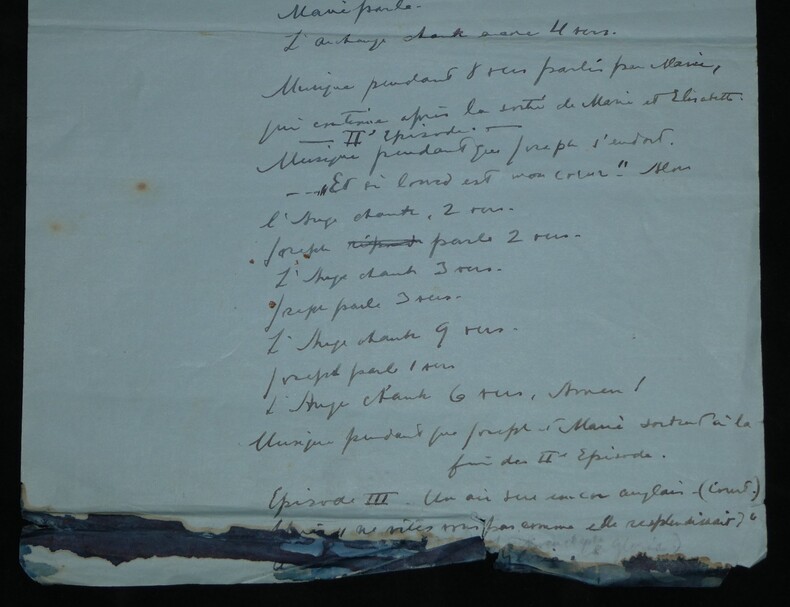 Marie parle.
L'archange chante encore 4 vers.
Musique pendant 8 vers parlés par Marie,
qui continue après la sortie de Marie et Elisabeth.
— II e Episode. —
Musique pendant que Joseph s'endort.
— "Et si lourd est mon cœur" Alors
l'Ange chante, 2 vers.
Joseph répond parle 2 vers.
L'Ange chante 3 vers.
Joseph parle 3 vers.
L'Ange chante 9 vers.
Joseph parle 1 vers
L'Ange chante 6 vers, Amen!
Musique pendant que Joseph et Marie sortent à la
fin du IIe Episode.
Episode III. Un air sur un cor anglais - (Court.)
ne vîtes vous pas comme elle resplendissait?